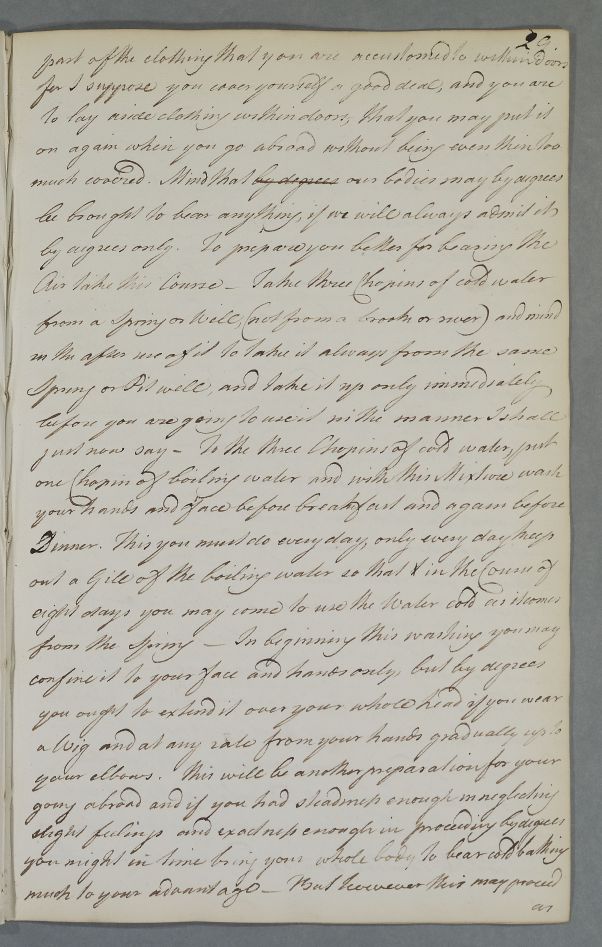 29.
part of the clothing that you are accustomed to within doors
for I suppose you cover yourself a good deal, and you are
to lay aside clothing within doors, that you may put it
on again when you go abroad without being even then too
much covered. Mind that by degrees our bodies may by degrees
be brought to bear any thing, if we will always admit it
by degrees only. To prepare you better for bearing the
Air take this Course – Take three Chopins of cold water
from a Spring or Well, (not from a brook or river) and mind
in the after use of it to take it always from the same
Spring or Pit well, and take it up only immediately
before you are going to use it in the manner I shall
just now say – To the three Chopins of cold water, put
one Chopin of boiling water and with this Mixture wash
your hands and face before breakfast and again before
Dinner. This you must do every day, only every day keep
out a Gill of the boiling water so that in the Course of
eight days you may come to use the Water cold as it comes
from the Spring – In beginning this washing you may
confine it to your face and hands only, but by degrees
you ought to extend it over your whole head if you wear
a Wig and at any rate from your hands gradually up to
your elbows. This will be another preparation for your
going abroad and if you had steadiness enough in neglecting
slight feelings and exactness enough in proceeding by degrees
you might in time bring your whole body to bear cold bathing
much to your advantage – But however this may proceed
as